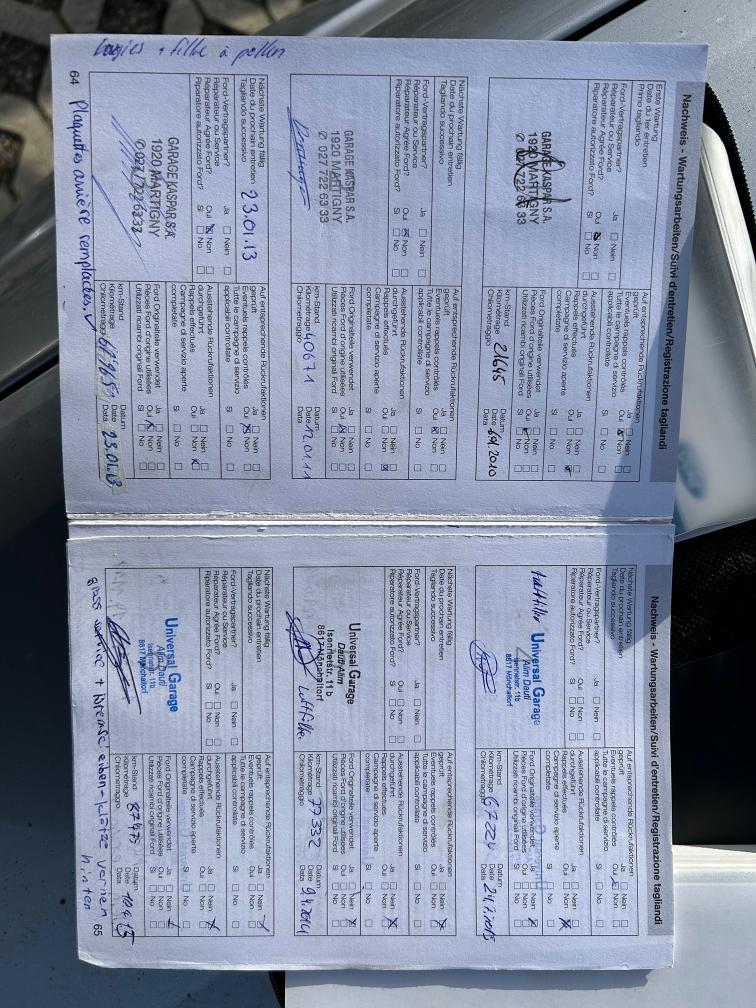 Nachweis - Wartungsarbeiten/Suivi d'entretien/Registrazione tagliandi
Erste Wartung
Date du 1er entretien
Primo tagliando
Ford-Vertragspartner? Ja Nein
Réparateur ou Service
Réparateur Agréé Ford? Oui Non
Riparatore autorizzato Ford? Si No
GARAGE KASPAR S.A.
1920 MARTIGNY
✆ 027 722 63 33
Auf entsprechende Rückrufaktionen
geprüft Ja Nein
Eventuels rappels contrôlés Oui Non
Tutte le campagne di servizio
applicabili controllate Si No
Ausstehende Rückrufaktionen
durchgeführt Ja Nein
Rappels effectués Oui Non
Campagne di servizio aperte
completate Si No
Ford Originalteile verwendet Ja Nein
Pièces Ford d'origine utilisées Oui Non
Utilizzati ricambi originali Ford Si No
km-Stand Datum
Kilométrage 21645 Date
Chilometraggio Data
Nächste Wartung fällig
Date du prochain entretien
Tagliando successivo
Ford-Vertragspartner? Ja Nein
Réparateur ou Service
Réparateur Agréé Ford? Oui Non
Riparatore autorizzato Ford? Si No
GARAGE KASPAR S.A.
1920 MARTIGNY
✆ 027 722 63 33
Auf entsprechende Rückrufaktionen
geprüft Ja Nein
Eventuels rappels contrôlés Oui Non
Tutte le campagne di servizio
applicabili controllate Si No
Ausstehende Rückrufaktionen
durchgeführt Ja Nein
Rappels effectués Oui Non
Campagne di servizio aperte
completate Si No
Ford Originalteile verwendet Ja Nein
Pièces Ford d'origine utilisées Oui Non
Utilizzati ricambi originali Ford Si No
km-Stand Datum
Kilométrage 40671 Date
Chilometraggio Data
Nächste Wartung fällig
Date du prochain entretien 23.01.13
Tagliando successivo
Ford-Vertragspartner? Ja Nein
Réparateur ou Service
Réparateur Agréé Ford? Oui Non
Riparatore autorizzato Ford? Si No
GARAGE KASPAR S.A.
1920 MARTIGNY
✆ 027 722 63 33
Auf entsprechende Rückrufaktionen
geprüft Ja Nein
Eventuels rappels contrôlés Oui Non
Tutte le campagne di servizio
applicabili controllate Si No
Ausstehende Rückrufaktionen
durchgeführt Ja Nein
Rappels effectués Oui Non
Campagne di servizio aperte
completate Si No
Ford Originalteile verwendet Ja Nein
Pièces Ford d'origine utilisées Oui Non
Utilizzati ricambi originali Ford Si No
km-Stand Datum
Kilométrage Date 23.01.13
Chilometraggio Data
bougies + filtre à pollen
64 Plaquettes arrière remplacées
Nachweis - Wartungsarbeiten/Suivi d'entretien/Registrazione tagliandi
Nächste Wartung fällig
Date du prochain entretien
Tagliando successivo
Ford-Vertragspartner? Ja Nein
Réparateur ou Service
Réparateur Agréé Ford? Oui Non
Riparatore autorizzato Ford? Si No
Luftfilter
Universal Garage
Alim Dardi
Isenrietstr. 11b
8617 Mönchaltorf
Auf entsprechende Rückrufaktionen
geprüft Ja Nein
Eventuels rappels contrôlés Oui Non
Tutte le campagne di servizio
applicabili controllate Si No
Ausstehende Rückrufaktionen
durchgeführt Ja Nein
Rappels effectués Oui Non
Campagne di servizio aperte
completate Si No
Ford Originalteile verwendet Ja Nein
Pièces Ford d'origine utilisées Oui Non
Utilizzati ricambi originali Ford Si No
km-Stand Datum
Kilométrage 67224 Date
Chilometraggio Data
Nächste Wartung fällig
Date du prochain entretien
Tagliando successivo
Ford-Vertragspartner? Ja Nein
Réparateur ou Service
Réparateur Agréé Ford? Oui Non
Riparatore autorizzato Ford? Si No
Universal Garage
Dardi Alim
Isenrietstr. 11 b
8617 Mönchaltorf
Auf entsprechende Rückrufaktionen
geprüft Ja Nein
Eventuels rappels contrôlés Oui Non
Tutte le campagne di servizio
applicabili controllate Si No
Ausstehende Rückrufaktionen
durchgeführt Ja Nein
Rappels effectués Oui Non
Campagne di servizio aperte
completate Si No
Ford Originalteile verwendet Ja Nein
Pièces Ford d'origine utilisées Oui Non
Utilizzati ricambi originali Ford Si No
km-Stand Datum
Kilométrage 77332 Date 9.4.2014
Chilometraggio Data
Nächste Wartung fällig
Date du prochain entretien
Tagliando successivo
Ford-Vertragspartner? Ja Nein
Réparateur ou Service
Réparateur Agréé Ford? Oui Non
Riparatore autorizzato Ford? Si No
Universal Garage
Alim Dardi
Isenrietstr. 11b
8617 Mönchaltorf
Auf entsprechende Rückrufaktionen
geprüft Ja Nein
Eventuels rappels contrôlés Oui Non
Tutte le campagne di servizio
applicabili controllate Si No
Ausstehende Rückrufaktionen
durchgeführt Ja Nein
Rappels effectués Oui Non
Campagne di servizio aperte
completate Si No
Ford Originalteile verwendet Ja Nein
Pièces Ford d'origine utilisées Oui Non
Utilizzati ricambi originali Ford Si No
km-Stand Datum
Kilométrage Date
Chilometraggio Data
Service + Bremsscheiben-Klötze vorne
hinten
65